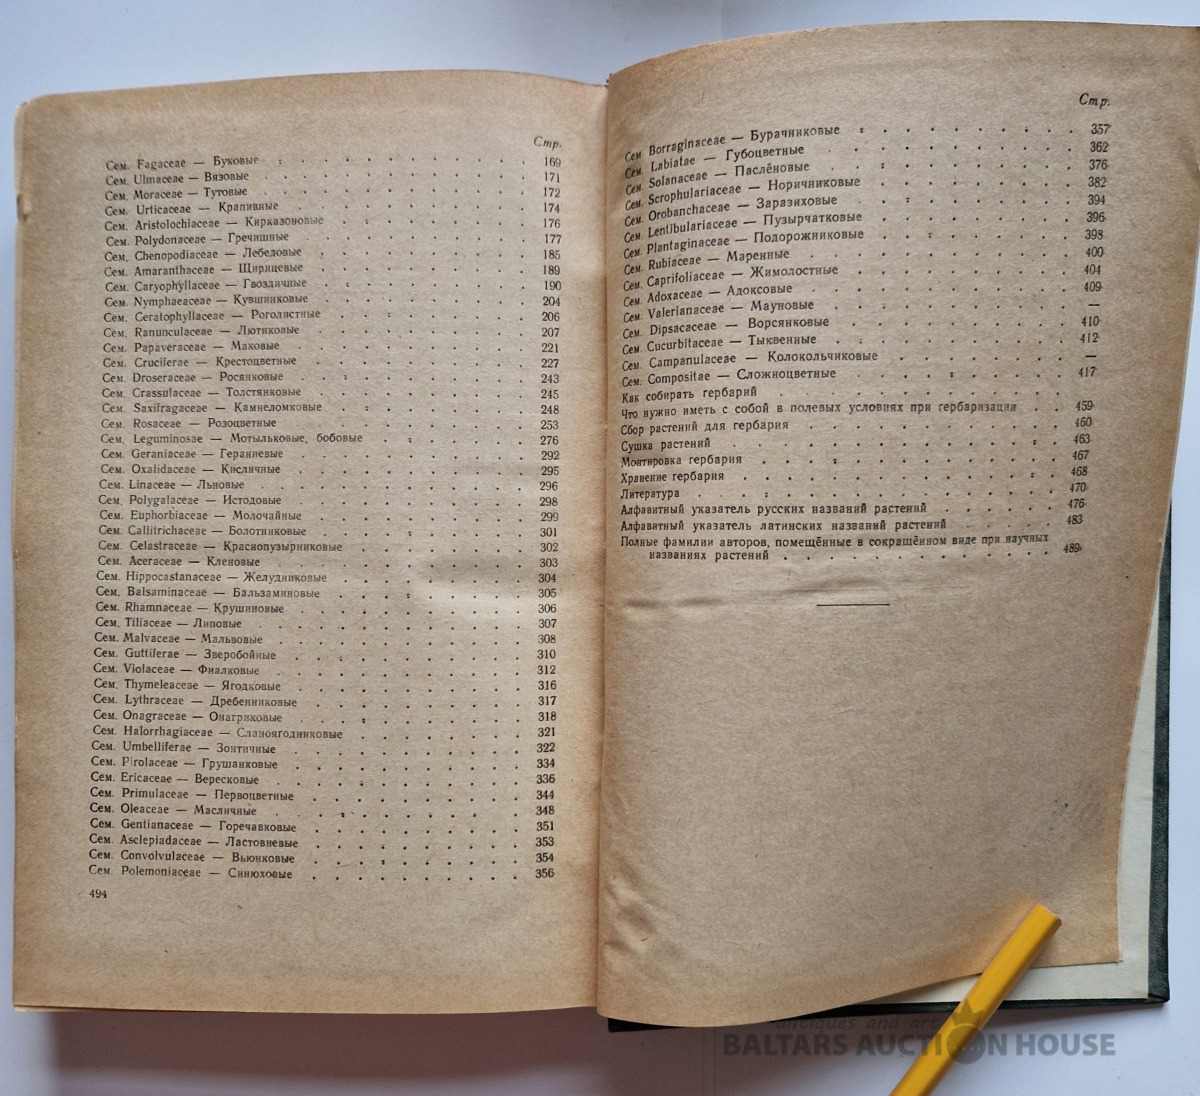 Стр.
Сем. Fagaceae — Буковые 169
Сем. Ulmaceae — Вязовые 171
Сем. Moraceae — Тутовые 172
Сем. Urticaceae — Крапивные 174
Сем. Aristolochiaceae — Кирказоновые 176
Сем. Polydonaceae — Гречишные 177
Сем. Chenopodiaceae — Лебедовые 185
Сем. Amaranthaceae — Щирицевые 189
Сем. Caryophyllaceae — Гвоздичные 190
Сем. Nymphaeaceae — Кувшинковые 204
Сем. Ceratophyllaceae — Роголистные 206
Сем. Ranunculaceae — Лютиковые 207
Сем. Papaveraceae — Маковые 221
Сем. Cruciferae — Крестоцветные 227
Сем. Droseraceae — Росянковые 243
Сем. Crassulaceae — Толстянковые 245
Сем. Saxifragaceae — Камнеломковые 248
Сем. Rosaceae — Розоцветные 253
Сем. Leguminosae — Мотыльковые, бобовые 276
Сем. Geraniaceae — Гераниевые 292
Сем. Oxalidaceae — Кисличные 295
Сем. Linaceae — Льновые 296
Сем. Polygalaceae — Истодовые 298
Сем. Euphorbiaceae — Молочайные 299
Сем. Callitrichaceae — Болотниковые 301
Сем. Celastraceae — Краснопузырниковые 302
Сем. Aceraceae — Кленовые 303
Сем. Hippocastanaceae — Желудниковые 304
Сем. Balsaminaceae — Бальзаминовые 305
Сем. Rhamnaceae — Крушиновые 306
Сем. Tiliaceae — Липовые 307
Сем. Malvaceae — Мальвовые 308
Сем. Guttiferae — Зверобойные 310
Сем. Violaceae — Фиалковые 312
Сем. Thymeleaceae — Ягодковые 316
Сем. Lythraceae — Дребенниковые 317
Сем. Onagraceae — Онагриковые 318
Сем. Halorrhagiaceae — Сланоягодниковые 321
Сем. Umbelliferae — Зонтичные 322
Сем. Pirolaceae — Грушанковые 334
Сем. Ericaceae — Вересковые 336
Сем. Primulaceae — Первоцветные 344
Сем. Oleaceae — Масличные 348
Сем. Gentianaceae — Горечавковые 351
Сем. Asclepiadaceae — Ластовневые 353
Сем. Convolvulaceae — Вьюнковые 354
Сем. Polemoniaceae — Синюховые 356
494
Стр.
Сем. Borraginaceae — Бурачниковые 357
Сем. Labiatae — Губоцветные 362
Сем. Solanaceae — Паслёновые 376
Сем. Scrophulariaceae — Норичниковые 382
Сем. Orobanchaceae — Заразиховые 394
Сем. Lentibulariaceae — Пузырчатковые 396
Сем. Plantaginaceae — Подорожниковые 398
Сем. Rubiaceae — Маренные 400
Сем. Caprifoliaceae — Жимолостные 404
Сем. Adoxaceae — Адоксовые 409
Сем. Valerianaceae — Мауновые —
Сем. Dipsacaceae — Ворсянковые 410
Сем. Cucurbitaceae — Тыквенные 412
Сем. Campanulaceae — Колокольчиковые —
Сем. Compositae — Сложноцветные 417
Как собирать гербарий
Что нужно иметь с собой в полевых условиях при гербаризации 459
Сбор растений для гербария 460
Сушка растений 463
Монтировка гербария 467
Хранение гербария 468
Литература 470
Алфавитный указатель русских названий растений 476
Алфавитный указатель латинских названий растений 483
Полные фамилии авторов, помещённые в сокращённом виде при научных
названиях растений 489
antiques and art
BALTARS AUCTION HOUSE